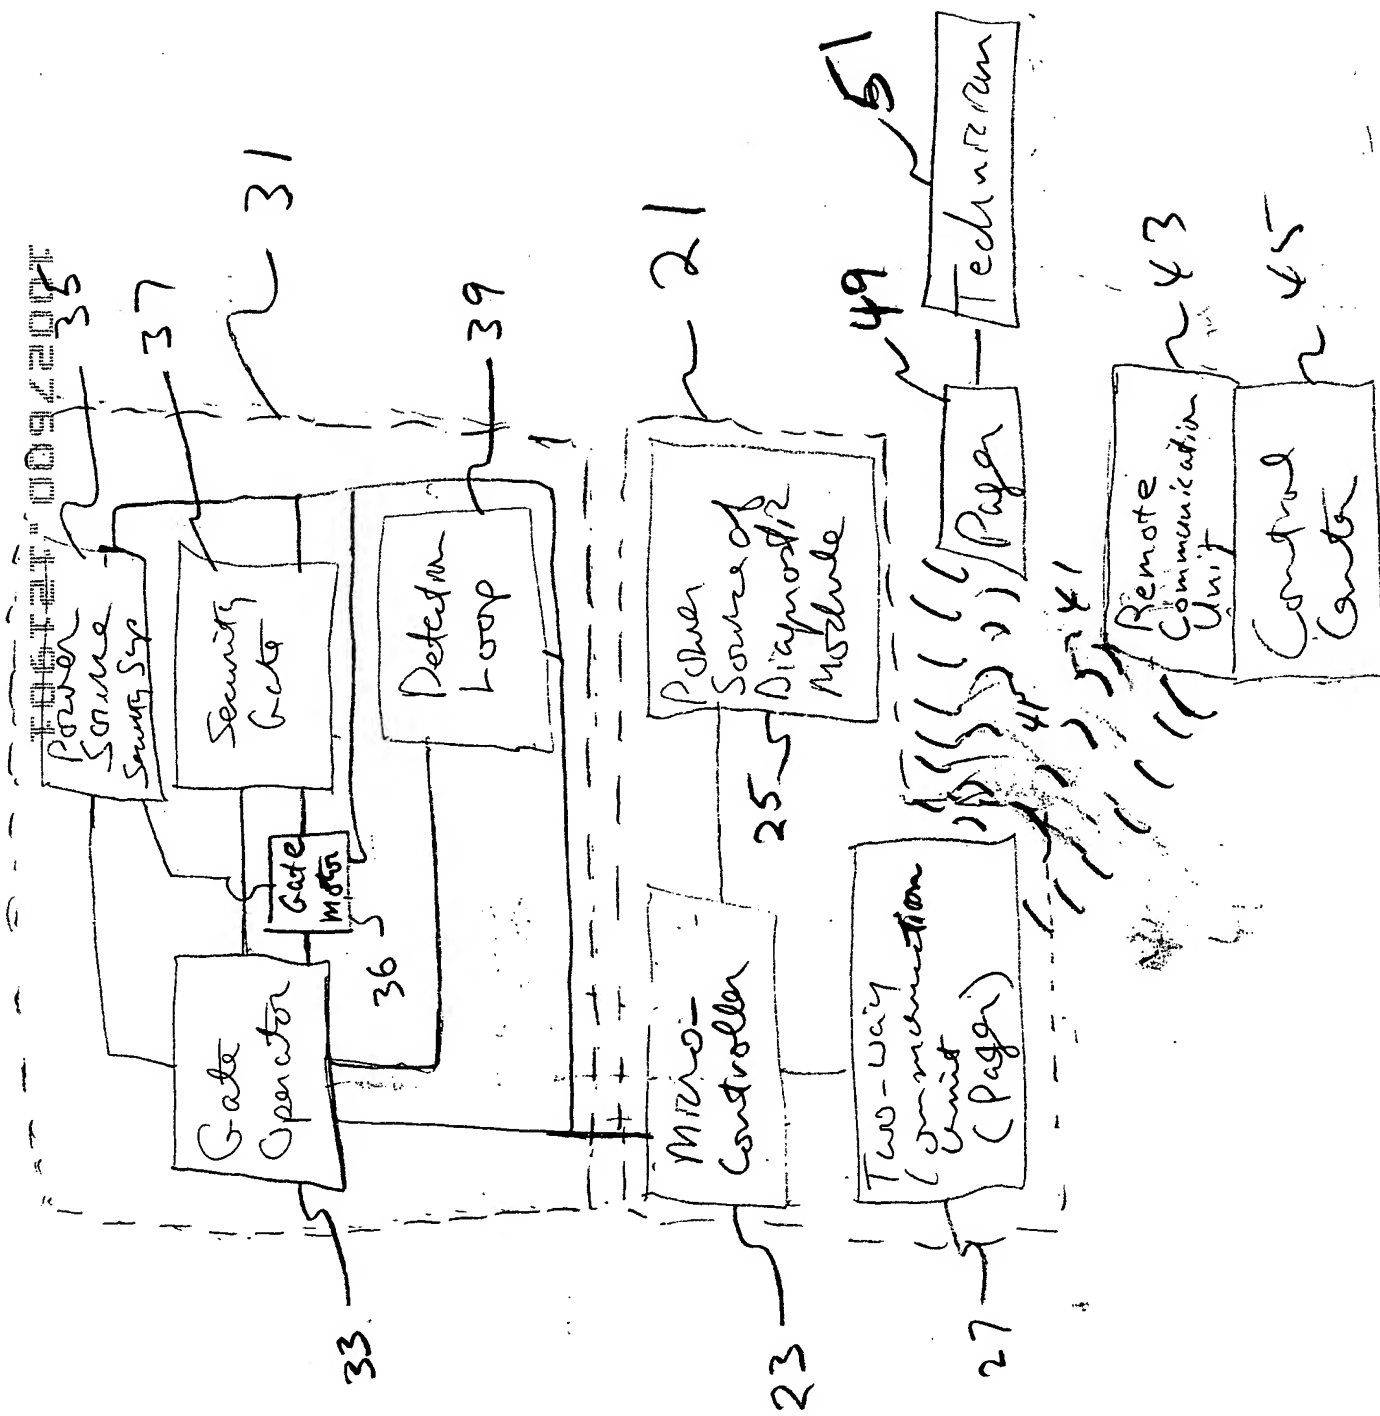 10027600.121901
35
Power
Source
37
Security
Gate
31
39
Detection
Loop
Gate
Motor
36
Gate
Operator
33
21
Power
Source of
Diagnostic
Module
25
Micro-
Controller
23
Two-way
Communication
Unit
(Pager)
27
41
41
49
Pager
51
Technician
Remote
Communication
Unit
43
Control
Center
45